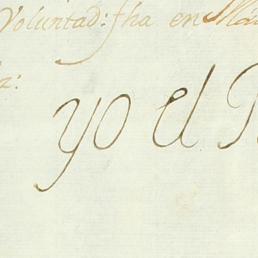 Voluntad: fha en Ma
a:
yo el R